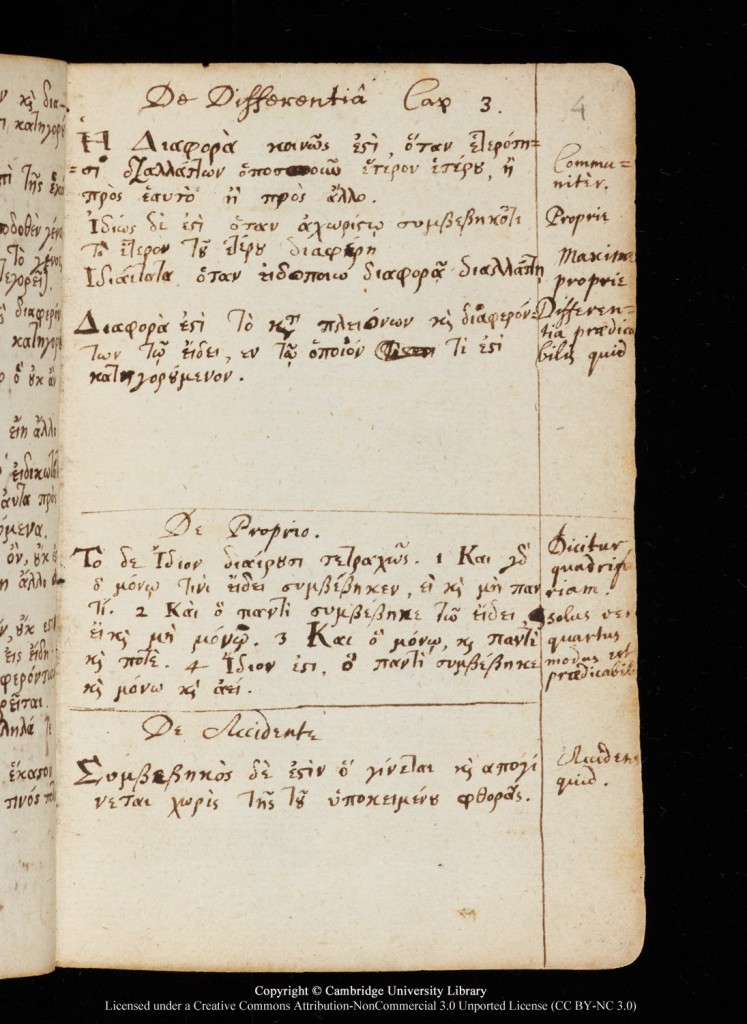 De Differentiâ Cap 3.
4
Ἡ Διαφορὰ κοινῶς ἐστὶ, ὅταν ἑτερότη-
=σι διαλλάττων ὁποσοιοῦν ἕτερον ἑτέρου, ἢ
πρὸς ἑαυτὸ ἢ πρὸς ἄλλο.
Ἰδίως δὲ ἐστὶ ὅταν ἀχωρίστῳ συμβεβηκότι
τὸ ἕτερον τοῦ ἑτέρου διαφέρη
Ἰδιαίτατα ὅταν εἰδοποιω διαφορᾷ διαλλάττη
Διαφορὰ ἐστὶ τὸ κτ πλειόνων καὶ διαφερόν-
των τῷ εἴδει, εν τῷ ὁποῖόν τὶ ἐστὶ
κατηγορούμενον.
Commu=
nitèr.
Proprie
Maxime
proprie
Differen-
tia prædica
bilis quid
De Proprio.
Τὸ δε Ἴδιον διαίρουσι τετραχῶς. 1 Και γδ
ὃ μόνῳ τινὶ εἴδει συμβέβηκεν, εἰ καὶ μὴ παν
τί. 2 Καὶ ὃ παντὶ συμβεβηκε τῶ εἴδει,
εἰ καὶ μὴ μόνῳ. 3 Και ὃ μόνῳ, καὶ παντὶ
καὶ ποτὲ. 4 Ἴδιον ἐστι, ὃ παντὶ συμβέβηκε
καὶ μόνω καὶ ἀεί.
Dicitur
quadrif
riam.
solus ver
quartus
modus est
prædicabil
De Accidente
Συμβεβηκὸς δὲ ἐστὶν ὃ γίνεται καὶ απογί
νεται χωρὶς τῆς τοῦ ὑποκειμένου φθορᾶς.
Acciden
quid.
Copyright © Cambridge University Library
Licensed under a Creative Commons Attribution-NonCommercial 3.0 Unported License (CC BY-NC 3.0)